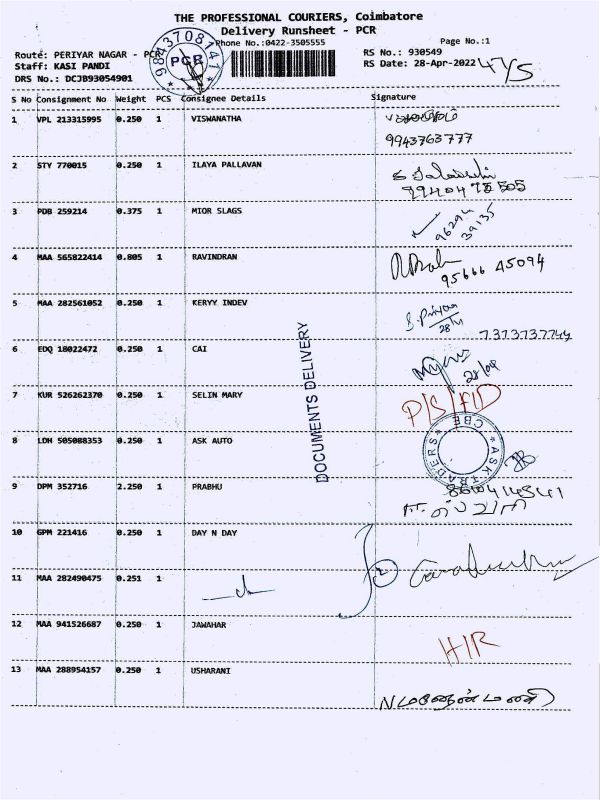 THE PROFESSIONAL COURIERS, Coimbatore
Delivery Runsheet - PCR
Phone No.:0422-3505555
Page No.:1
Route: PERIYAR NAGAR - PCR
RS No.: 930549
Staff: KASI PANDI
RS Date: 28-Apr-2022
DRS No.: DCJB93054901
9843708141
PCR
S No Consignment No Weight PCS Consignee Details Signature
1 VPL 213315995 0.250 1 VISWANATHA
9943763777
2 STY 770015 0.250 1 ILAYA PALLAVAN
3 PDB 259214 0.375 1 MIOR SLAGS
96294
39135
4 MAA 565822414 0.805 1 RAVINDRAN
95666 45094
5 MAA 282561052 0.250 1 KERYY INDEV
7373737744
6 EDQ 18022472 0.250 1 CAI
28/04
7 KUR 526262370 0.250 1 SELIN MARY
DOCUMENTS DELIVERY
8 LDH 505088353 0.250 1 ASK AUTO
ASK TRADERS CBE
9 DPM 352716 2.250 1 PRABHU
10 GPM 221416 0.250 1 DAY N DAY
11 MAA 282490475 0.251 1
12 MAA 941526687 0.250 1 JAWAHAR
13 MAA 288954157 0.250 1 USHARANI